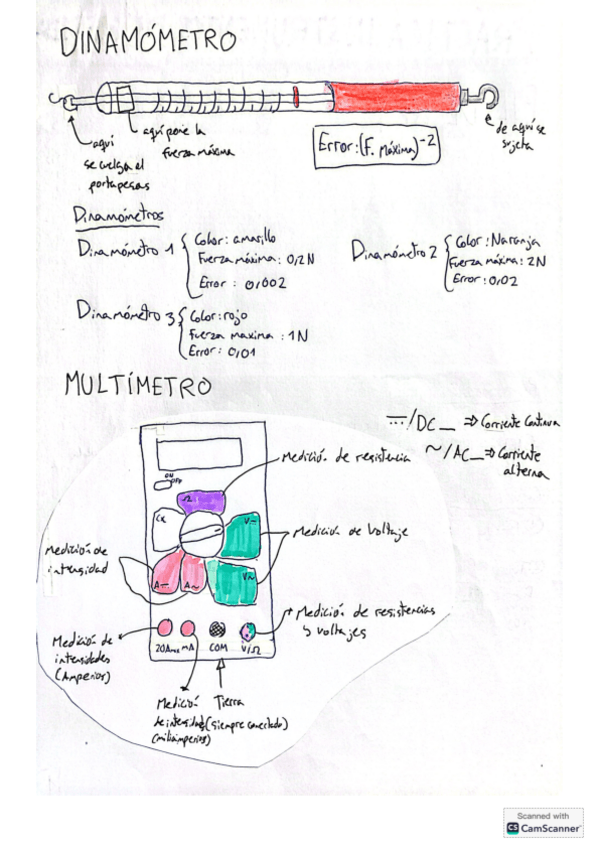 DINAMÓMETRO
aquí
se cuelga el
portapesas
aquí pone la
fuerza máxima
Error: (F. máxima)⁻²
de aquí se
sujeta
Dinamómetros
Dinamómetro 1
Color: amarillo
Fuerza máxima: 0,2N
Error: 0,002
Dinamómetro 2
Color: Naranja
Fuerza máxima: 2N
Error: 0,02
Dinamómetro 3
Color: rojo
Fuerza maxima: 1N
Error: 0,01
MULTÍMETRO
/DC_ ⇒ Corriente Continua
~/AC_ ⇒ Corriente
alterna
ON
OFF
Ω
Cx
V
V~
A
A~
Medición de resistencia
Medición de Voltaje
Medición de
intensidad
Medición de resistencias
y voltajes
Medición de
intensidades
(Amperios)
20A
mA
COM
V/Ω
Medición
de intensidad
(miliamperios)
Tierra
(siempre conectado)
Scanned with
CS CamScanner